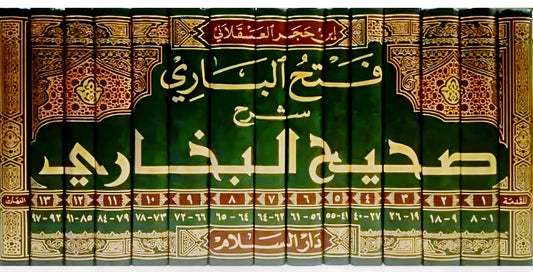 ابن حجر العسقلاني
فتح الباري
شرح
صحيح البخاري
المقدمة ١ ٢ ٣ ٤ ٥ ٦ ٧ ٨ ٩ ١٠ ١١ ١٢ ١٣ الفهارس
١-٨ ٩-١٨ ١٩-٢٦ ٢٧-٤٠ ٤١-٥٥ ٥٦-٦١ ٦٢-٦٤ ٦٤-٦٥ ٦٦-٧٢ ٧٣-٧٨ ٧٩-٨٤ ٨٥-٩١ ٩٢-٩٧
دار السلام